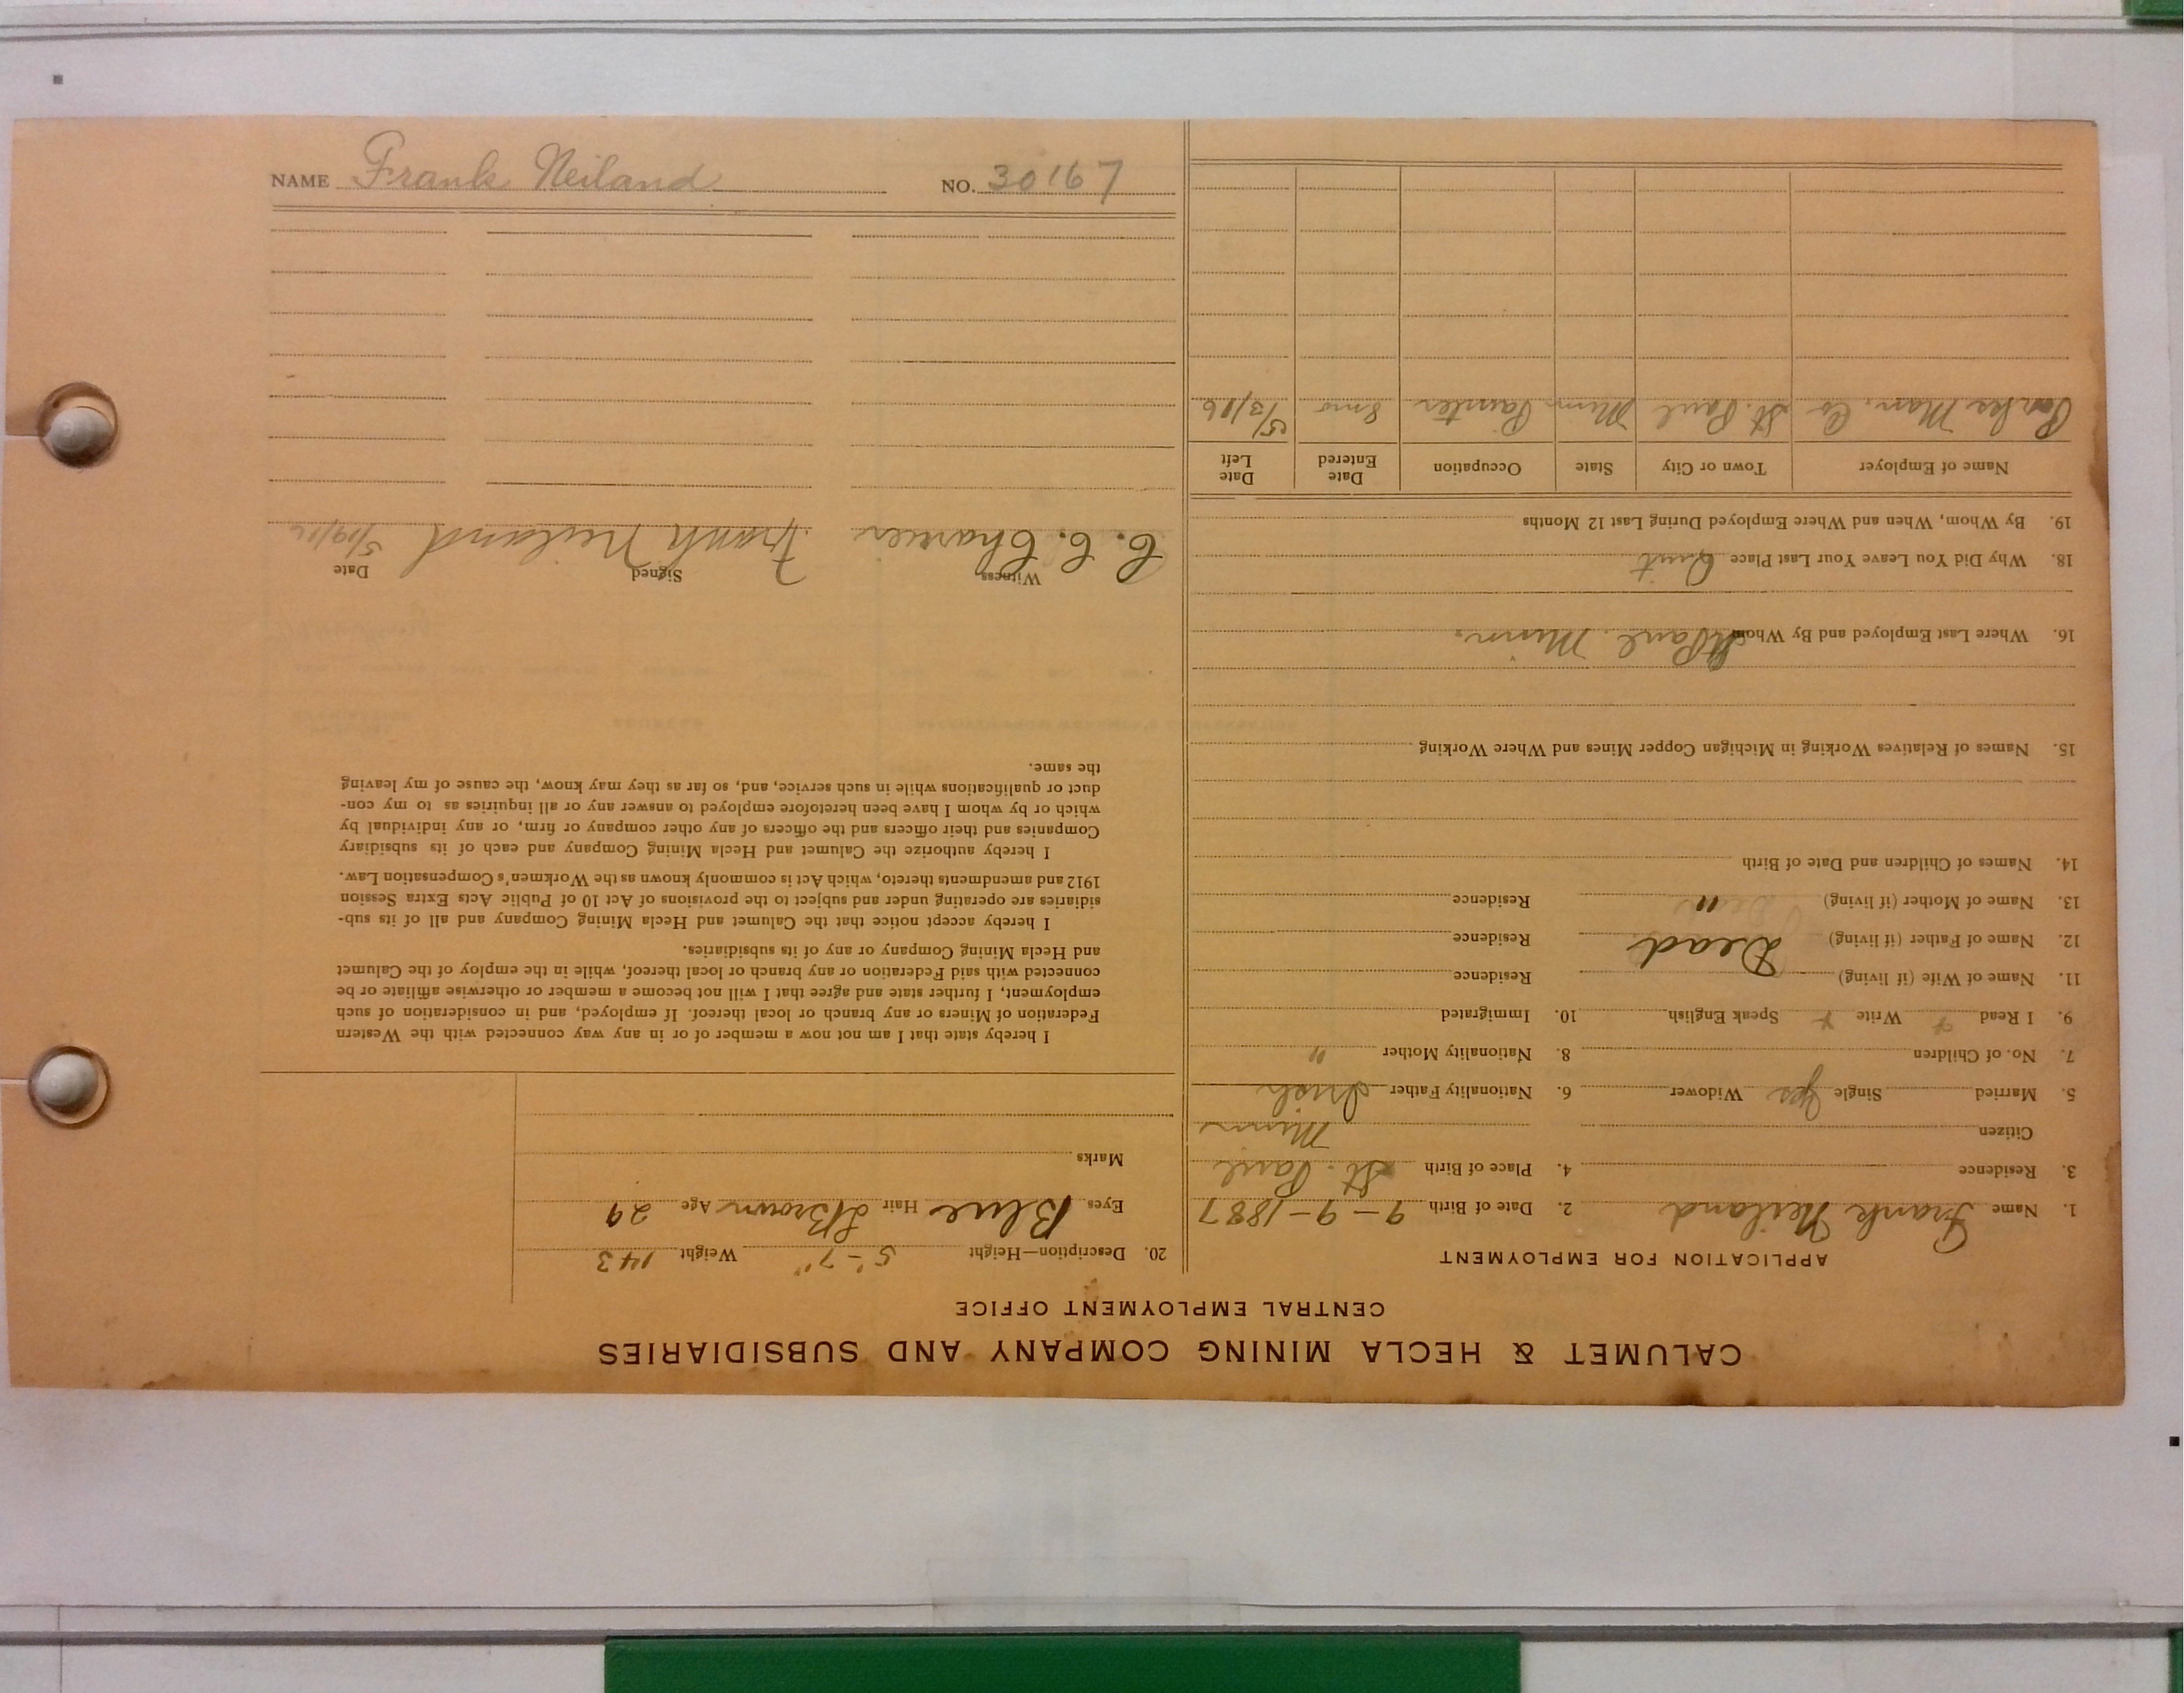 NAME Frank Neiland NO. 30167
CALUMET & HECLA MINING COMPANY AND SUBSIDIARIES
CENTRAL EMPLOYMENT OFFICE
APPLICATION FOR EMPLOYMENT
1. Name Frank Neiland 2. Date of Birth 9-9-1887
3. Residence 4. Place of Birth St. Paul
Citizen Minn
5. Married Single Yes Widower 6. Nationality Father Irish
7. No. of Children 8. Nationality Mother "
9. I Read Write Speak English 10. Immigrated
11. Name of Wife (if living) Residence
12. Name of Father (if living) Dead Residence
13. Name of Mother (if living) " Residence
14. Names of Children and Date of Birth
15. Names of Relatives Working in Michigan Copper Mines and Where Working
16. Where Last Employed and By Whom St Paul Minn.
18. Why Did You Leave Your Last Place Quit
19. By Whom, When and Where Employed During Last 12 Months
Name of Employer Town or City State Occupation Date Entered Date Left
Man. Co St. Paul Minn Painter 8 mo 5/3/16
20. Description—Height 5'-7" Weight 143
Eyes Blue Hair Brown Age 29
Marks
I hereby state that I am not now a member of or in any way connected with the Western
Federation of Miners or any branch or local thereof. If employed, and in consideration of such
employment, I further state and agree that I will not become a member or otherwise affiliate or be
connected with said Federation or any branch or local thereof, while in the employ of the Calumet
and Hecla Mining Company or any of its subsidiaries.
I hereby accept notice that the Calumet and Hecla Mining Company and all of its sub-
sidiaries are operating under and subject to the provisions of Act 10 of Public Acts Extra Session
1912 and amendments thereto, which Act is commonly known as the Workmen's Compensation Law.
I hereby authorize the Calumet and Hecla Mining Company and each of its subsidiary
Companies and their officers and the officers of any other company or firm, or any individual by
which or by whom I have been heretofore employed to answer any or all inquiries as to my con-
duct or qualifications while in such service, and, so far as they may know, the cause of my leaving
the same.
Witness Signed Date
C. C. Frank Neiland